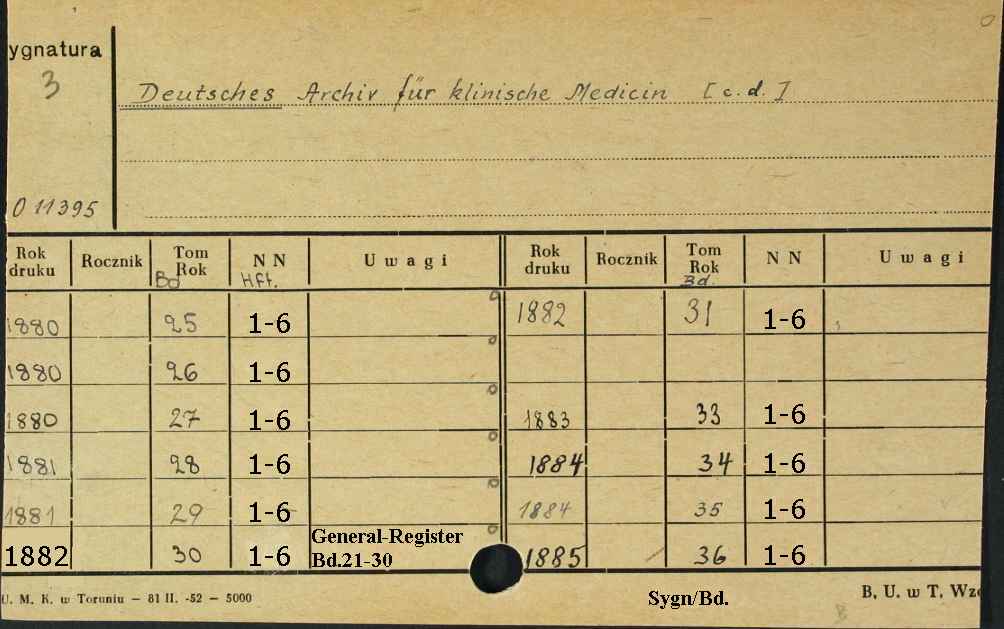 ygnatura
3
Deutsches Archiv für klinische Medicin [c.d.]
O 11395
Rok druku Rocznik Tom Rok Bd N N Hft. Uwagi Rok druku Rocznik Tom Rok Bd. N N Uwagi
1880 25 1-6 1882 31 1-6
1880 26 1-6
1880 27 1-6 1883 33 1-6
1881 28 1-6 1884 34 1-6
1881 29 1-6 1884 35 1-6
1882 30 1-6 General-Register Bd.21-30 1885 36 1-6
U. M. K. w Toruniu — 81 II. -52 — 5000 Sygn/Bd. B. U. w T. Wzo